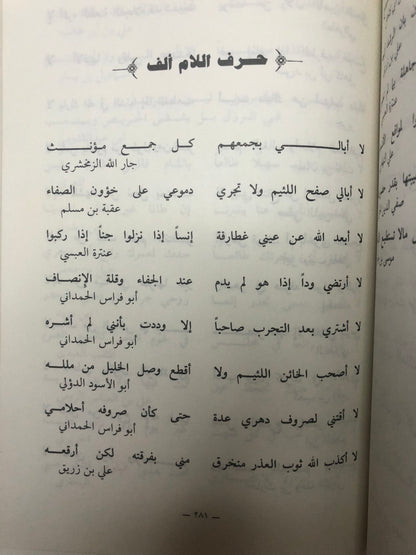 حرف اللام ألف
لا أبالي بجمعهم كل جمع مؤنث
جار الله الزمخشري
لا أبالي صفح اللئيم ولا تجري دموعي على خؤون الصفاء
عقبة بن مسلم
لا أبعد الله عن عيني غطارفة إنساً إذا نزلوا جناً إذا ركبوا
عنترة العبسي
لا أرتضي وداً إذا هو لم يدم عند الجفاء وقلة الإنصاف
أبو فراس الحمداني
لا أشتري بعد التجرب صاحباً إلا وددت بأنني لم أشره
أبو فراس الحمداني
لا أصحب الخائن اللئيم ولا أقطع وصل الخليل من ملله
أبو الأسود الدؤلي
لا أقتني لصروف دهري عدة حتى كأن صروفه أحلامي
أبو فراس الحمداني
لا أكذب الله ثوب العذر منخرق مني بفرقته لكن أرقعه
علي بن زريق
— ٢٨١ —